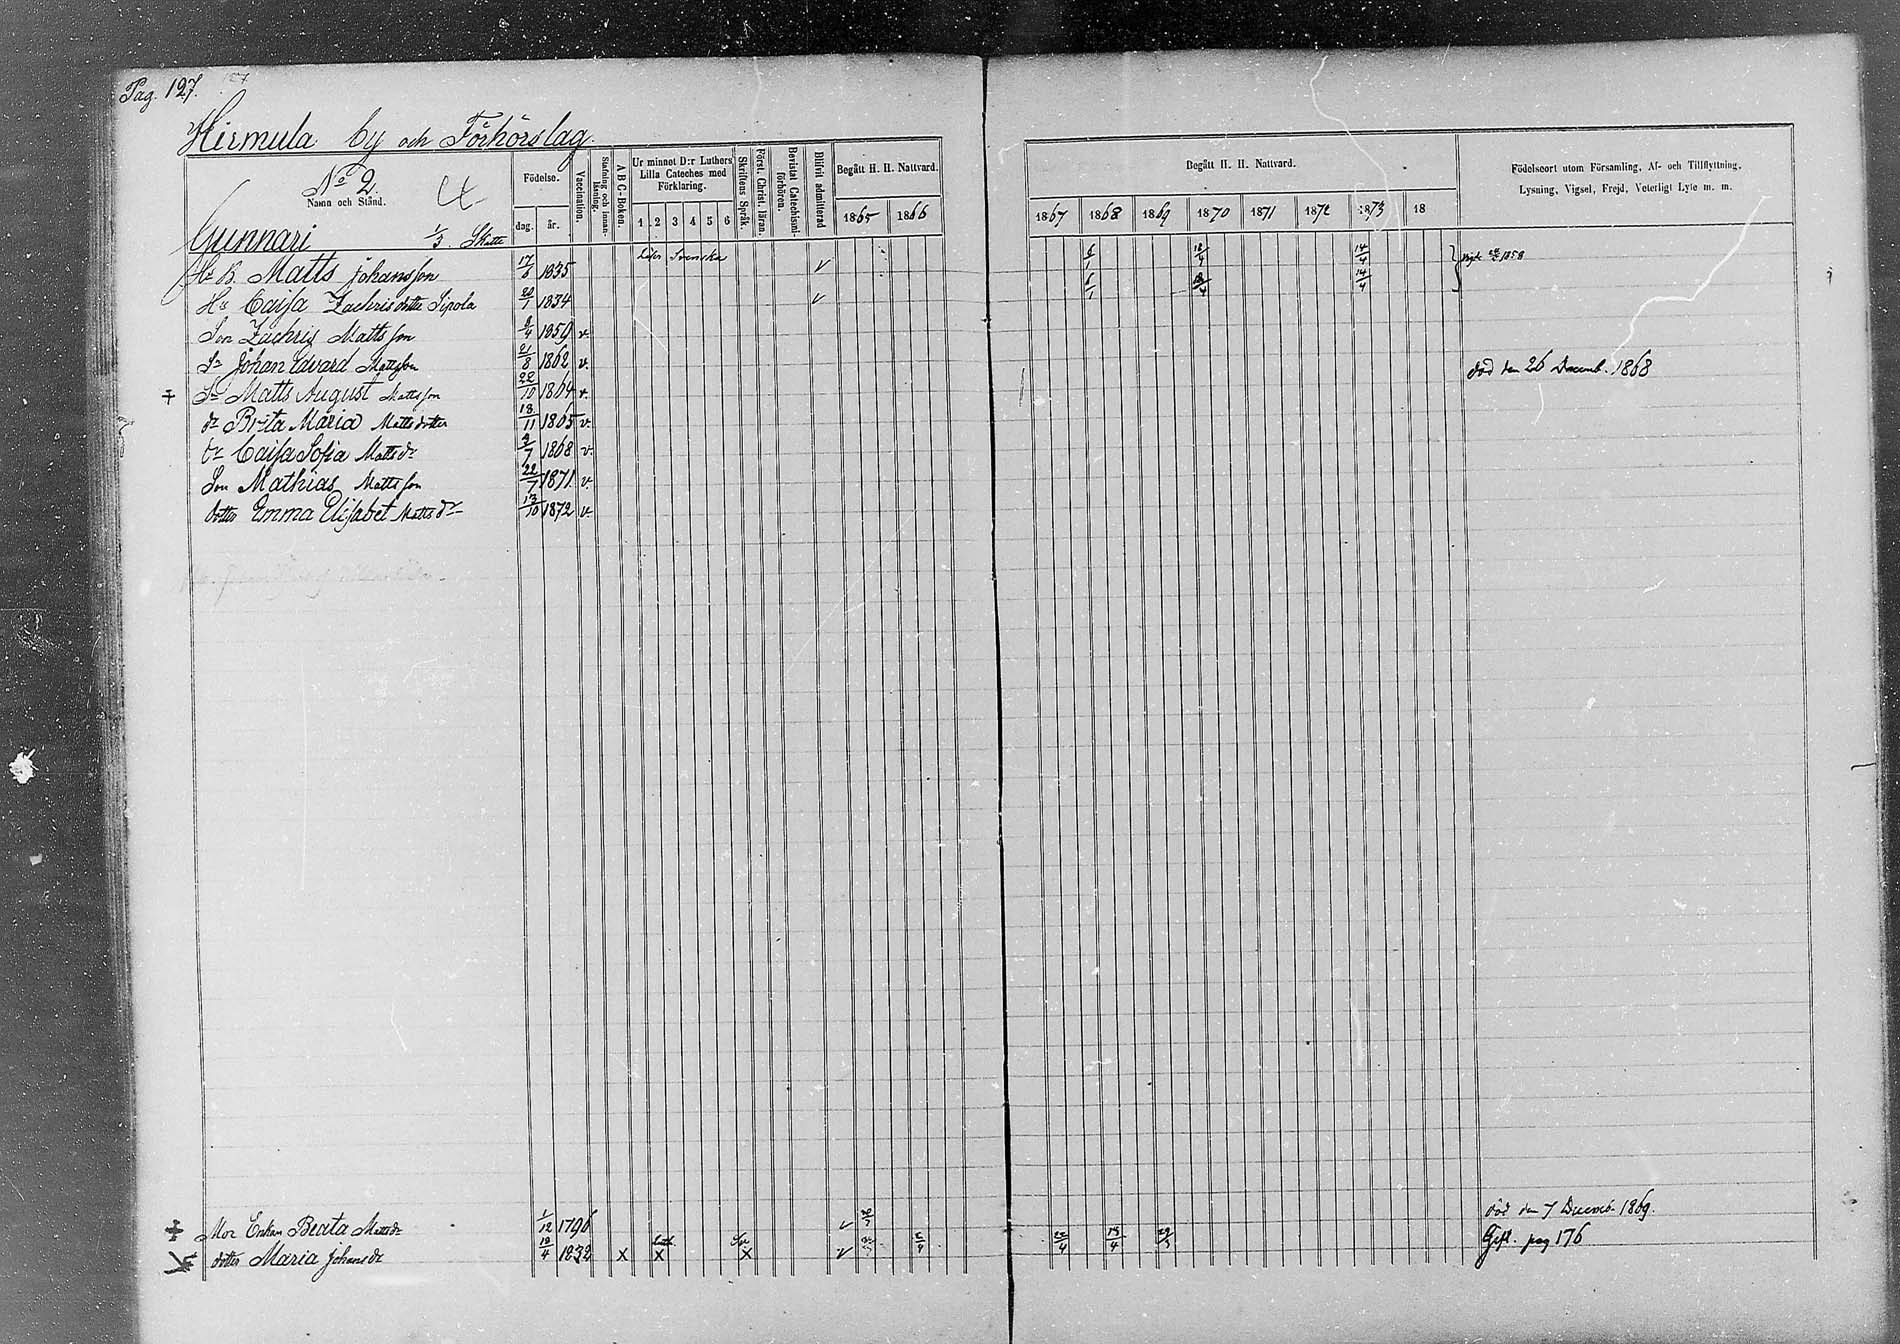 Pag. 127.
127
Hirmula by och Förhörslag.
No 2.
Namn och Stånd.
Födelse.
dag. år.
Vaccination.
Stafning och innanläsning.
ABC-Boken.
Ur minnet D:r Luthers Lilla Cateches med Förklaring.
1 2 3 4 5 6
Skriftens Språk.
Först. Christ. läran.
Bevistat Catechismiförhören.
Blifvit admitterad
Begått H. H. Nattvard.
1865 1866
Begått H. H. Nattvard.
1867 1868 1869 1870 1871 1872 1873 18
Födelseort utom Församling, Af- och Tillflyttning,
Lysning, Vigsel, Frejd, Veterligt Lyte m. m.
Gunnari 1/3 Skatte
Matts Johansson 17/6 1835 läser Svenska v 6/1 18/4 14/4 1858
Hu Caisa Zachrisdotter Sipola 20/1 1834 v 6/1 18/4 14/4
Son Zachris Mattsson 9/4 1859 v.
Sn Johan Edvard Mattsson 21/8 1862 v.
Sn Matts August Mattsson 22/10 1864 v. död den 26 Decemb. 1868
dr Brita Maria Mattsdotter 18/11 1865 v.
dr Caisa Sofia Mattsdr 9/7 1868 v.
Son Mathias Mattsson 22/7 1871 v.
dotter Emma Elisabet Mattsdr 13/10 1872 v.
Mor Enkan Beata Mattsdr 1/12 1796 v död den 7 Decemb. 1869.
dotter Maria Johansdr 19/4 1832 x x x v Gift. pag 176